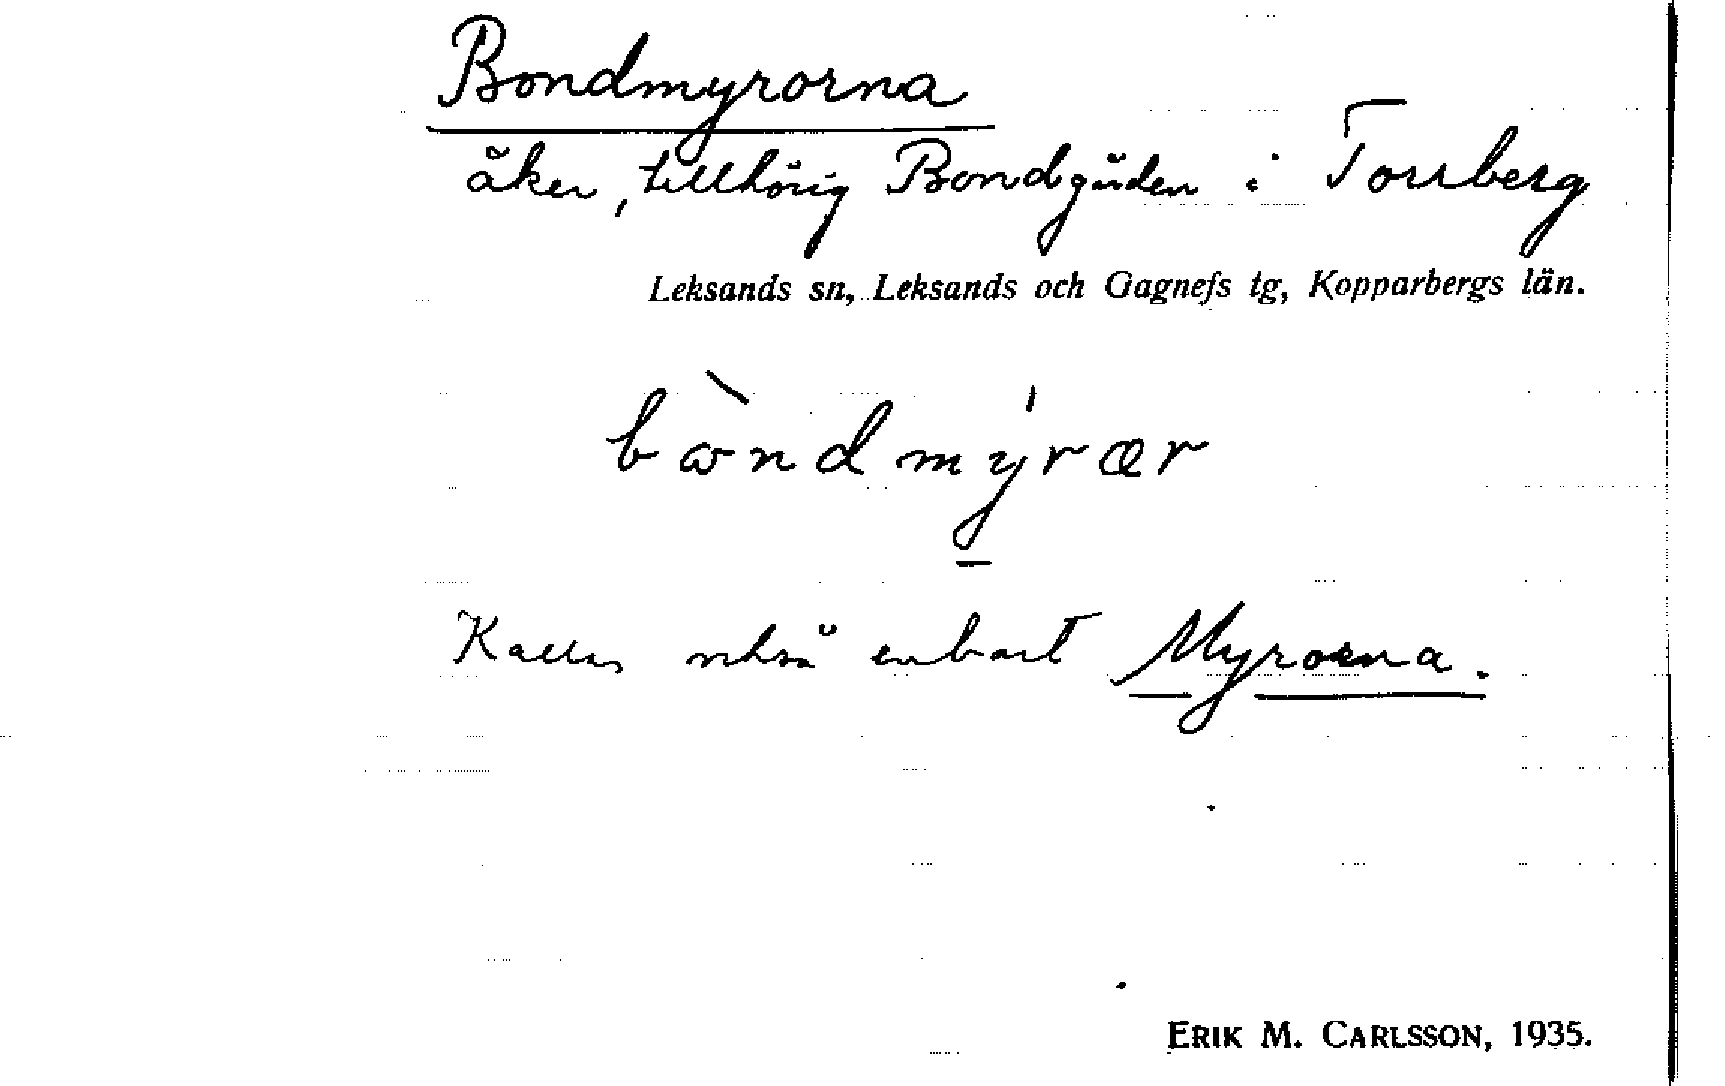 Bondmyrorna
åker, tillhörig Bondgården i Torrberg
Leksands sn, Leksands och Gagnefs tg, Kopparbergs län.
Kallas också enbart Myrorna.
ERIK M. CARLSSON, 1935.